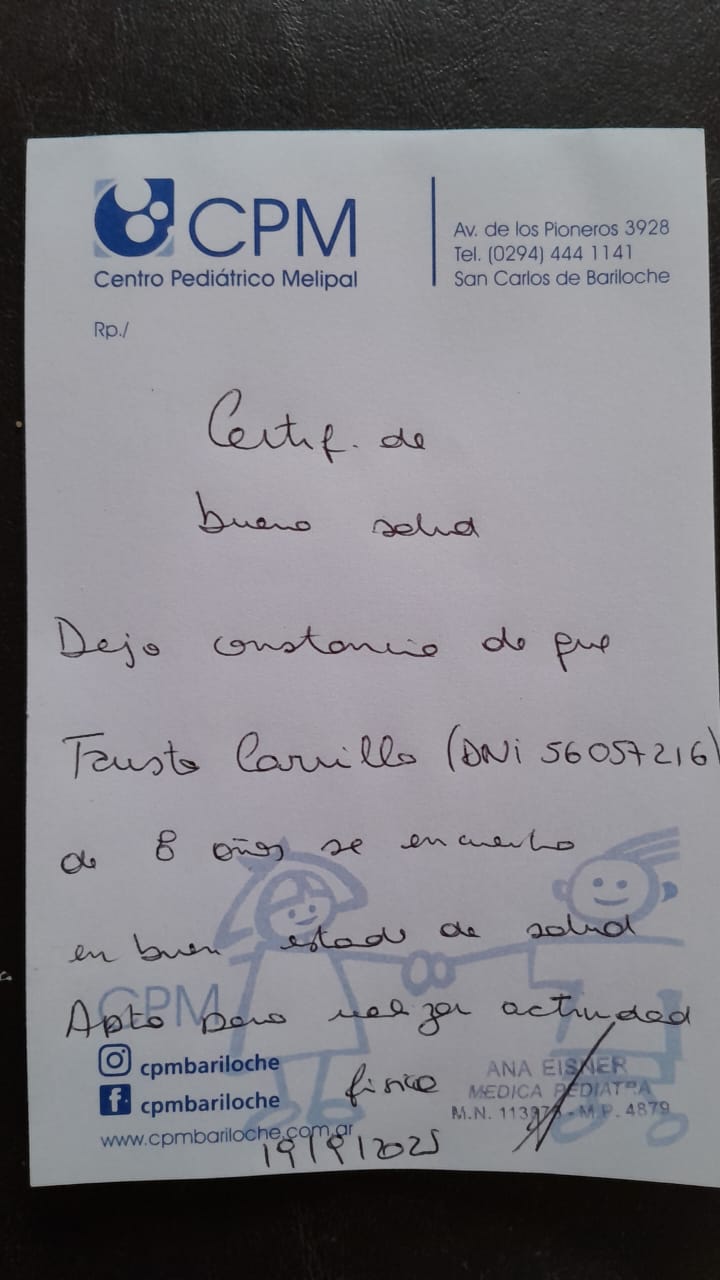 CPM
Centro Pediátrico Melipal
Av. de los Pioneros 3928
Tel. (0294) 444 1141
San Carlos de Bariloche
Rp./
Certif. de
buena salud
Dejo constancia de que
Fausto Carrillo (DNi 56057216)
de 8 años se encuentra
en buen estado de salud
Apto para realizar actividad
física
CPM
cpmbariloche
cpmbariloche
www.cpmbariloche.com.ar
ANA EISNER
MEDICA PEDIATRA
M.P. 4879